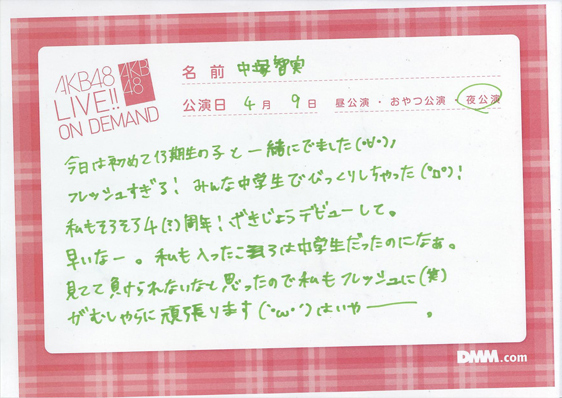 AKB48
LIVE!!
ON DEMAND
AKB
48
名 前 中塚智実
公演日 4 月 9 日 昼公演 ・ おやつ公演 ・ 夜公演
今日は初めて13期生の子と一緒にでました(°∀°)ノ
フレッシュすぎる! みんな中学生でびっくりしちゃった(°ロ°)!
私もそろそろ4(?)周年! げきじょうデビューして。
早いなー。私も入ったころは中学生だったのになぁ。
見てて負けられないなと思ったので私もフレッシュに(笑)
がむしゃらに頑張ります(`・ω・´)はいやー――。
DMM.com